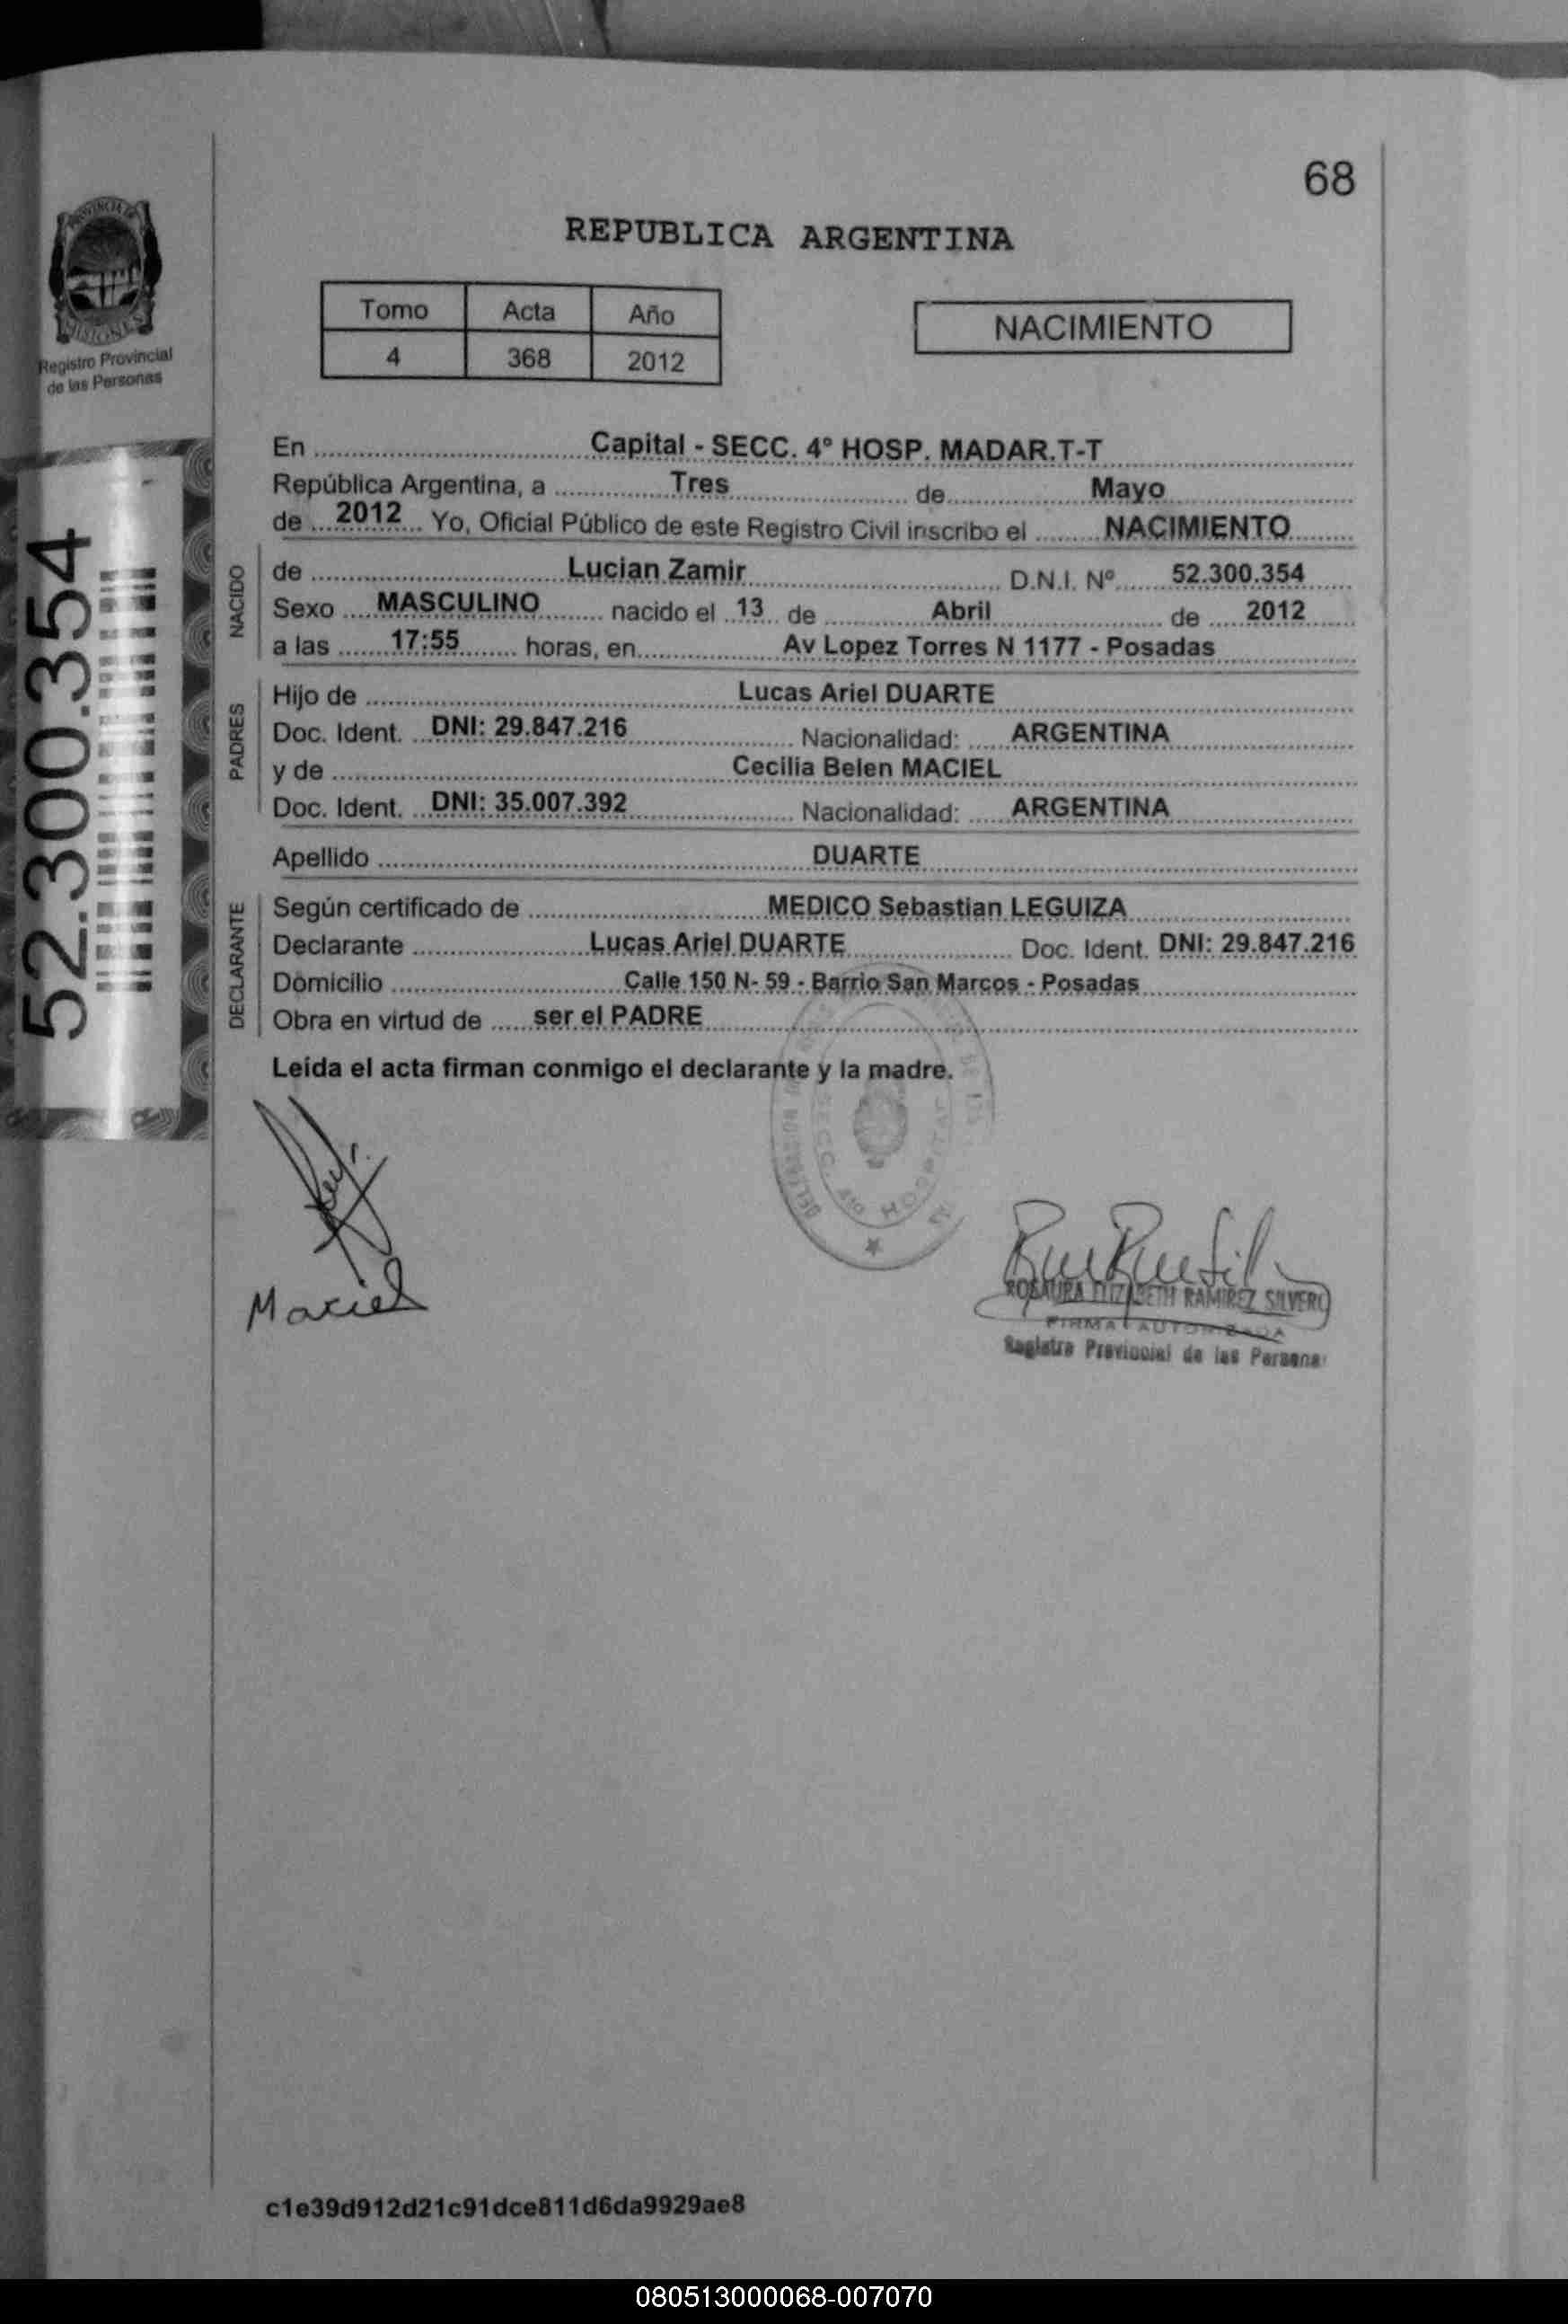 68
REPUBLICA ARGENTINA
PROVINCIA DE
MISIONES
Registro Provincial
de las Personas
Tomo Acta Año
4 368 2012
NACIMIENTO
52.300.354
En Capital - SECC. 4° HOSP. MADAR.T-T
República Argentina, a Tres de Mayo
de 2012 Yo, Oficial Público de este Registro Civil inscribo el NACIMIENTO
NACIDO
de Lucian Zamir D.N.I. Nº 52.300.354
Sexo MASCULINO nacido el 13 de Abril de 2012
a las 17:55 horas, en Av Lopez Torres N 1177 - Posadas
PADRES
Hijo de Lucas Ariel DUARTE
Doc. Ident. DNI: 29.847.216 Nacionalidad: ARGENTINA
y de Cecilia Belen MACIEL
Doc. Ident. DNI: 35.007.392 Nacionalidad: ARGENTINA
Apellido DUARTE
DECLARANTE
Según certificado de MEDICO Sebastian LEGUIZA
Declarante Lucas Ariel DUARTE Doc. Ident. DNI: 29.847.216
Domicilio Calle 150 N- 59 - Barrio San Marcos - Posadas
Obra en virtud de ser el PADRE
Leída el acta firman conmigo el declarante y la madre.
Maciel
ROSAURA ELIZABETH RAMIREZ SILVERO
FIRMA AUTORIZADA
Registro Provincial de las Personas
c1e39d912d21c91dce811d6da9929ae8
080513000068-007070